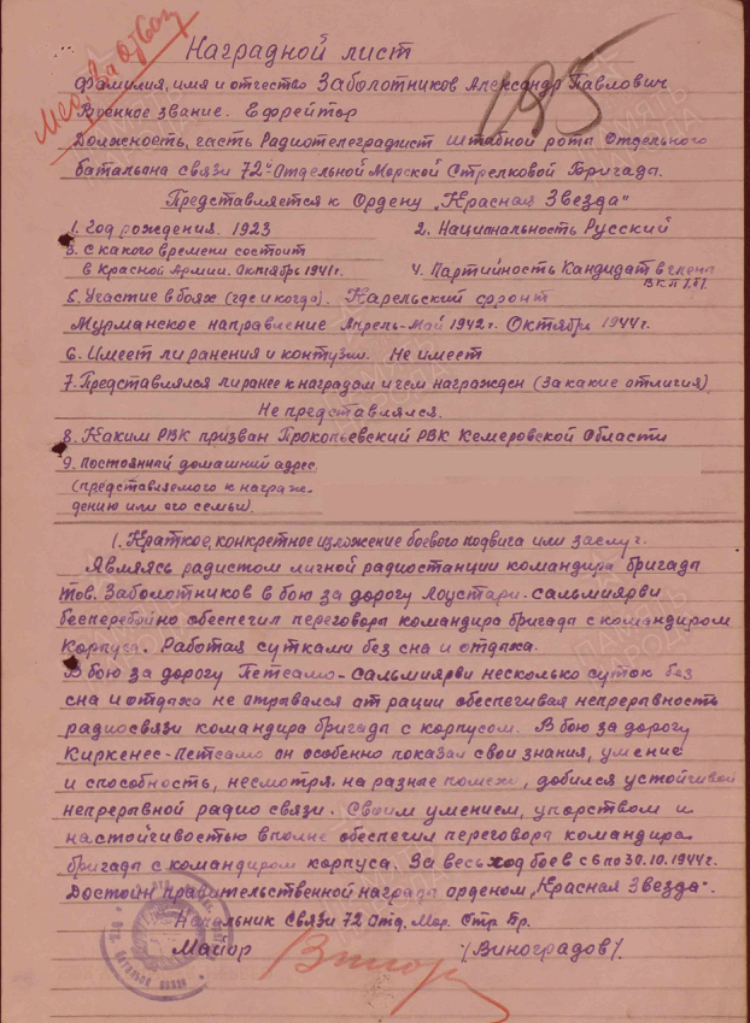 Мед. За Отвагу
185
Наградной лист
Фамилия, имя и отчество Заболотников Александр Павлович
Военное звание. Ефрейтор
Должность, часть Радиотелеграфист штабной роты Отдельного
батальона связи 72й Отдельной Морской Стрелковой Бригады.
Представляется к Ордену „Красная Звезда"
1. Год рождения. 1923
2. Национальность Русский
3. С какого времени состоит
в Красной Армии. Октябрь 1941г.
4. Партийность Кандидат в члены
ВКП/б/.
5. Участие в боях (где и когда). Карельский фронт
Мурманское направление Апрель-Май 1942г. Октябрь 1944г.
6. Имеет ли ранения и контузии. Не имеет
7. Представлялся ли ранее к наградам и чем награжден (За какие отличия)
Не представлялся.
8. Каким РВК призван Прокопьевский РВК Кемеровской Области
9. Постоянный домашний адрес
(представляемого к награж-
дению или его семьи).
1. Краткое, конкретное изложение боевого подвига или заслуг.
Являясь радистом личной радиостанции командира бригады
тов. Заболотников в бою за дорогу Лоустари-сальмиярви
бесперебойно обеспечил переговоры командира бригады с командиром
Корпуса. Работая сутками без сна и отдыха.
В бою за дорогу Петсамо-Сальмиярви несколько суток без
сна и отдыха не отрывался от рации обеспечивая непрерывность
радиосвязи командира бригады с корпусом. В бою за дорогу
Киркенес-Петсамо он особенно показал свои знания, умение
и способность, несмотря на разные помехи, добился устойчивой
непрерывной радио связи. Своим умением, упорством и
настойчивостью вполне обеспечил переговоры командира
бригады с командиром корпуса. За весь ход боев с 6 по 30.10.1944г.
Достоин правительственной награды орденом „Красная Звезда".
Начальник Связи 72 Отд. Мор. Стр. Бр.
Майор /Виноградов/.
ПАМЯТЬ НАРОДА